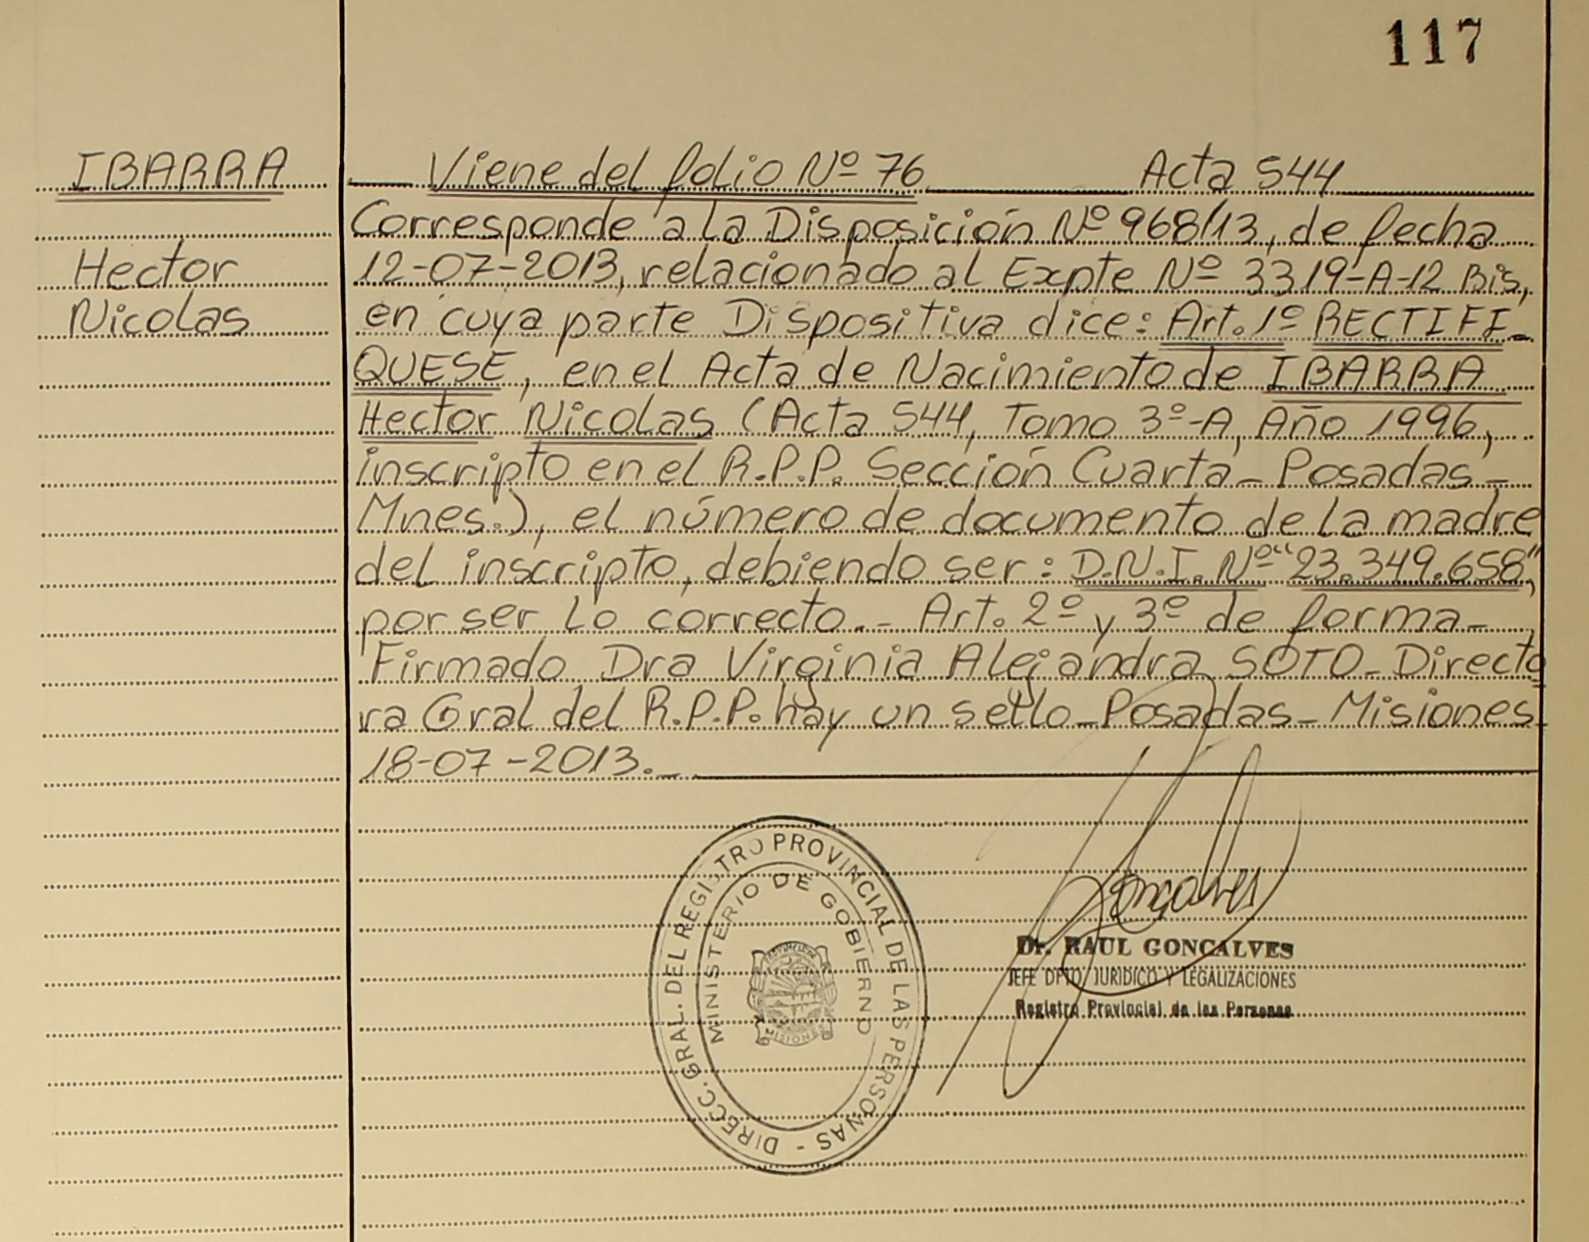 117
IBARRA
Hector
Nicolas
Viene del folio Nº 76 Acta 544
Corresponde a la Disposición Nº 968/13, de fecha
12-07-2013, relacionado al Expte Nº 3319-A-12 Bis,
en cuya parte Dispositiva dice: Art. 1º RECTIFI-
QUESE, en el Acta de Nacimiento de IBARRA
Hector Nicolas (Acta 544, Tomo 3º-A, Año 1996,
inscripto en el R.P.P. Sección Cuarta - Posadas -
Mnes.), el número de documento de la madre
del inscripto, debiendo ser: D.N.I. Nº "23.349.658",
por ser lo correcto.- Art. 2º y 3º de forma-
Firmado Dra Virginia Alejandra SOTO - Directo
ra Gral del R.P.P. hay un sello - Posadas - Misiones
18-07-2013.-
DIRECC. GRAL. DEL REGISTRO PROVINCIAL DE LAS PERSONAS -
MINISTERIO DE GOBIERNO
PROVINCIA
MISIONES
Goncalves
Dr. RAUL GONCALVES
JEFE DPTO JURIDICO Y LEGALIZACIONES
Registro Provincial de las Personas